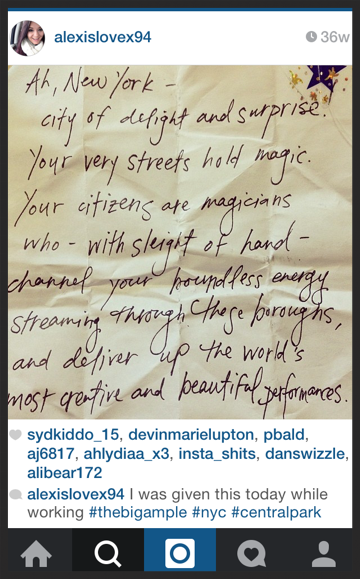 alexislovex94
36w
Ah, New York -
city of delight and surprise.
Your very streets hold magic.
Your citizens are magicians
who - with sleight of hand -
channel your boundless energy
streaming through these boroughs,
and deliver up the world's
most creative and beautiful performances.
sydkiddo_15, devinmarielupton, pbald,
aj6817, ahlydiaa_x3, insta_shits, danswizzle,
alibear172
alexislovex94 I was given this today while
working #thebigample #nyc #centralpark